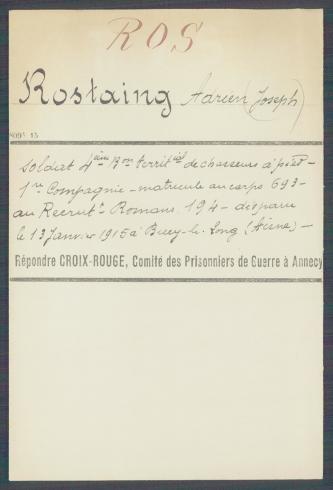 ROS
Rostaing Adrien (Joseph)
Soldat 4ème Bon territial de chasseurs à pied -
1re Compagnie - matricule au corps 693 -
au Recruitt Romans 194 - disparu
le 13 Janvier 1915 à Bucy-le-Long (Aisne) -
Répondre CROIX-ROUGE, Comité des Prisonniers de Guerre à Annecy